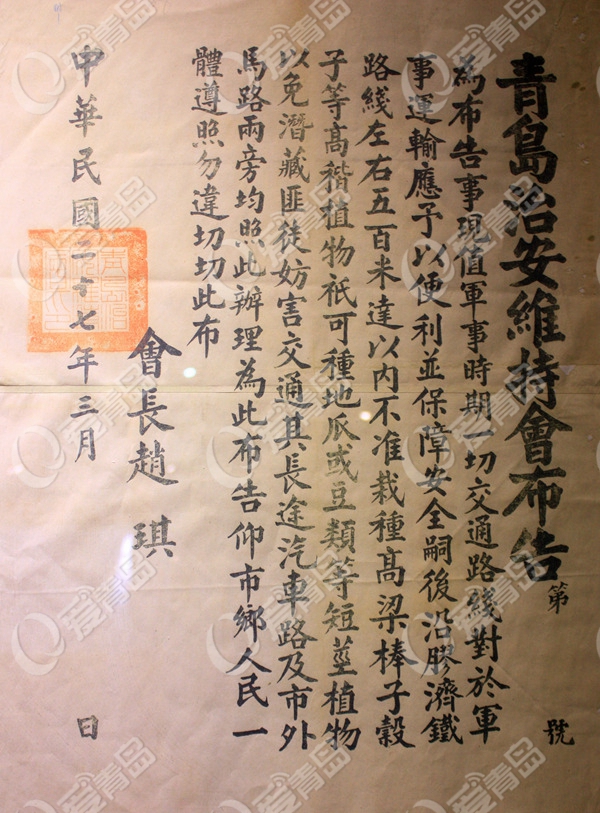 青島治安維持會布告 第 號
為布告事現值軍事時期一切交通路綫對於軍
事運輸應予以便利並保障安全嗣後沿膠濟鐵
路綫左右五百米達以內不准栽種高梁棒子穀
子等高稭植物衹可種地瓜或豆類等短莖植物
以免潛藏匪徒妨害交通其長途汽車路及市外
馬路兩旁均照此辦理為此布告仰市鄉人民一
體遵照勿違切切此布
會長趙琪
中華民國二十七年三月 日
爱青岛